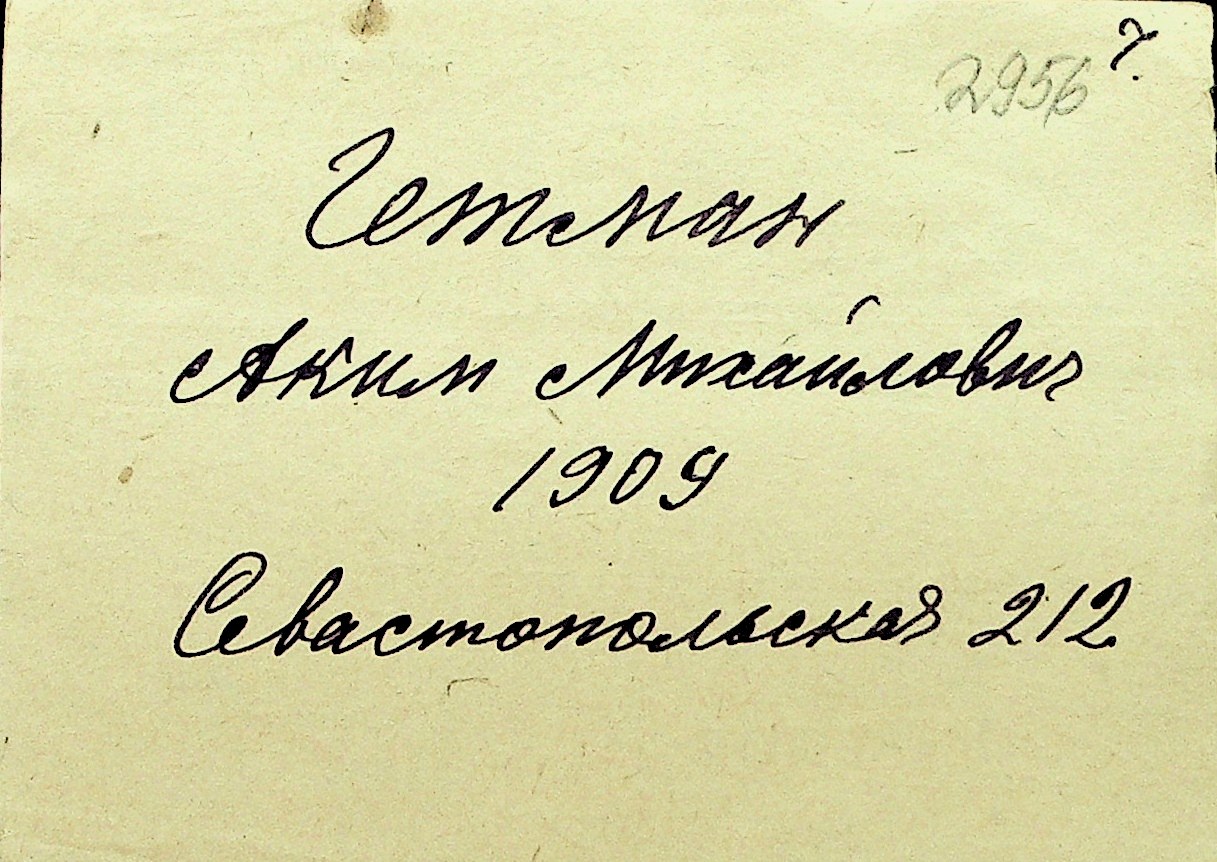 2956 7.
Гетман
Аким Михайлович
1909
Севастопольская 212